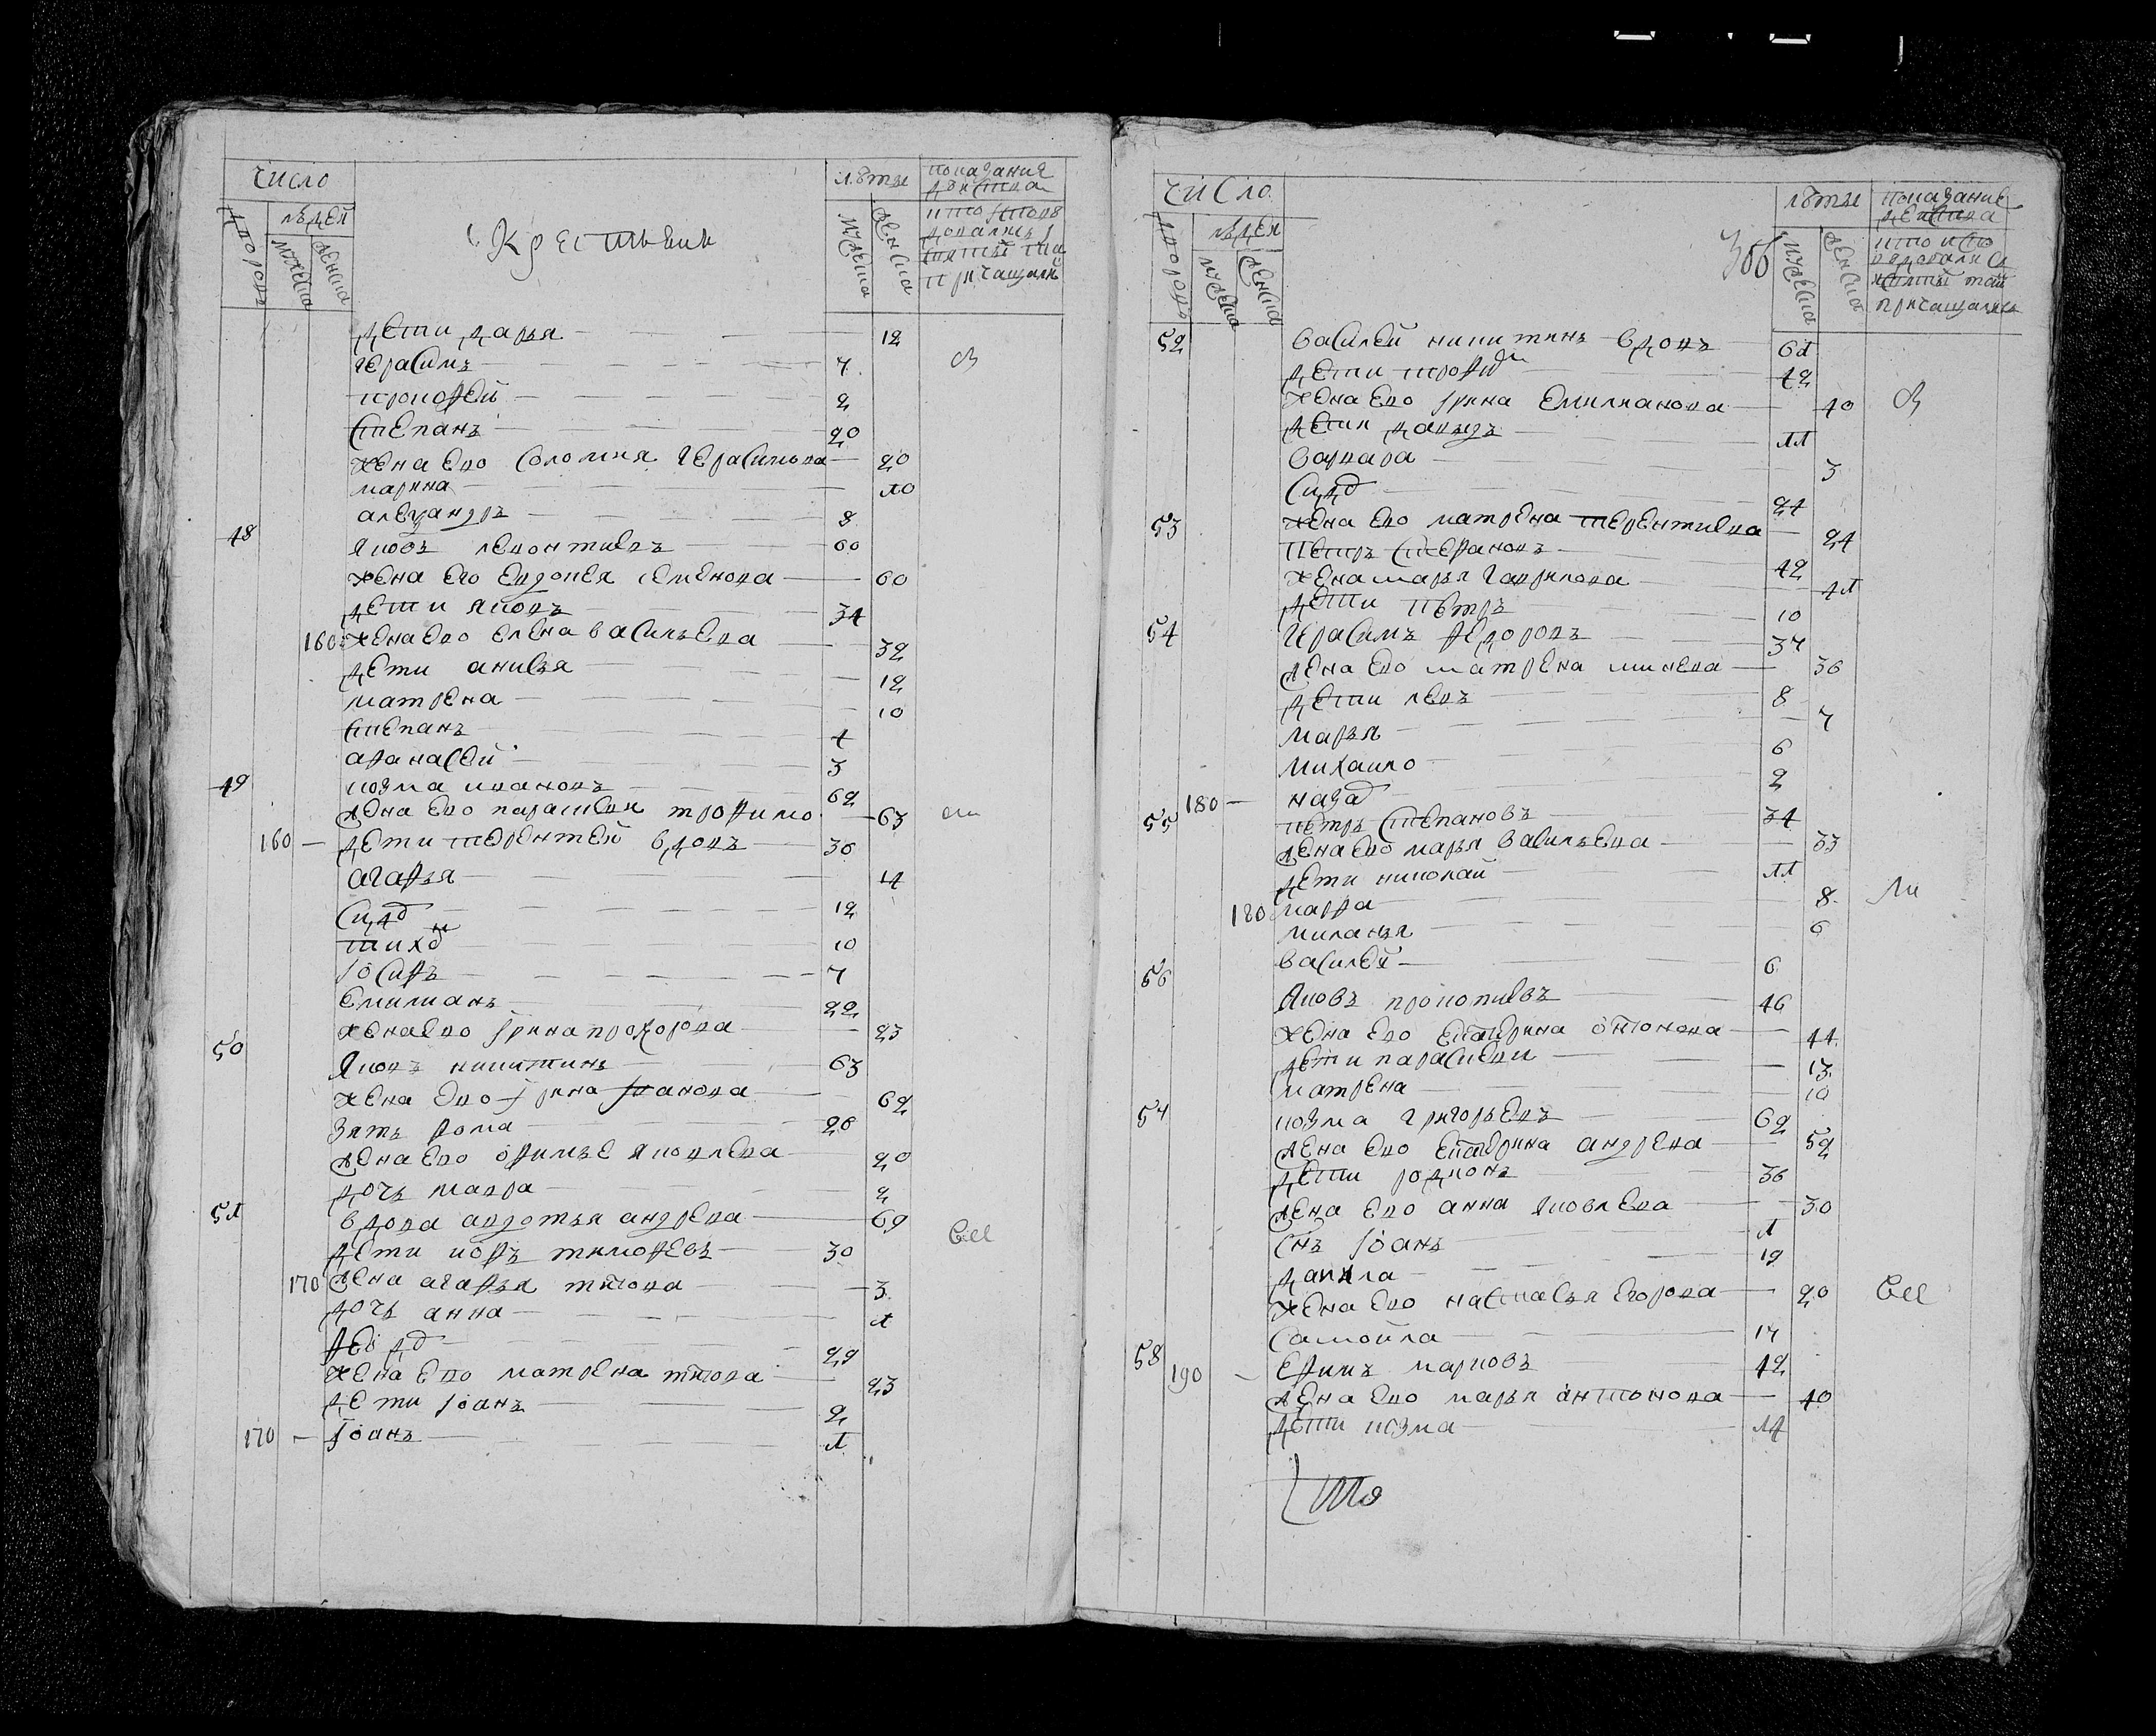 число
людей
дворовъ
мужеска
женска
Крестьяне
лѣты
мужеска
женска
показание
действа
кто исповѣ
довались и
святыхъ та
причащали
дети дарья 12
герасимъ 7
прокофей 2
степанъ 20
жена ево соломия герасимова 20
марина 10
алеѯандръ 8
48
яковъ левонтиевъ 60
жена его евдокея семенова 60
дети яковъ 34
160 жена ево елена васильева 32
дети анисья 12
матрена 10
степанъ 4
афанасей 3
49
козма ивановъ 62
жена ево парасковия трофимо 63
160 дети терентей вдовъ 36
агафья 14
сидо 12
тихо 10
іосифъ 7
емилианъ 22
жена ево ірина прохорова 23
50
яковъ никитинъ 63
жена ево ірина іванова 62
зять фома 26
жена ево офимье яковлева 20
дочь мавра 2
51
вдова авдотья андрева 69
дети іовъ тимофевъ 30
170 жена агафья титова 3
дочь анна 1
федо 29
жена ево матрена титова 23
дети іоанъ 2
170 іоанъ 1
число
людей
дворовъ
мужеска
женска
306
лѣты
мужеска
женска
показание
действа
кто испо
ведовали с
и святыхъ таи
причащались
52
василей никитинъ вдовъ 61
дети трофим 42
жена ево ірина емилианова 40
дети давыдъ 11
варвара 3
сидо 24
53
жена ево матрена терентиева 24
петръ стефановъ 42
жена марья гаврилова 41
дети петръ 10
54
герасимъ федоровъ 37
жена ево матрена минева 36
дети левъ 8
марья 7
михаило 6
180 наза 2
55
петръ степановъ 34
жена ево марья васильева 33
дети николай 11
180 марфа 8
миланья 6
василей 6
56
яковъ прокопиевъ 46
жена ево екатерина антонова 44
дети парасковия 13
матрена 10
57
козма григорьевъ 62
жена ево екатерина андрева 52
дети родионъ 36
жена ево анна яковлева 30
снъ іоанъ 1
данила 19
жена ево настасья егорова 20
самойла 17
58
190 ефимъ марковъ 42
жена ево марья антонова 40
дети козма 14